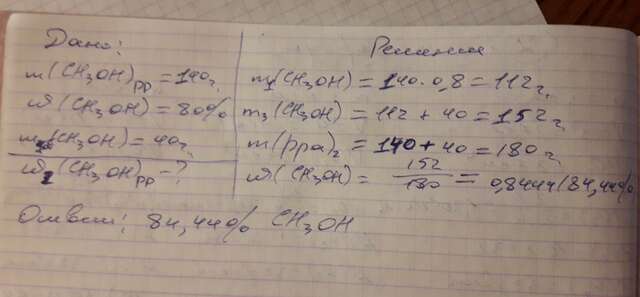 Дано:
m(CH₃OH)рр = 140г.
ω(CH₃OH) = 80%
m₂(CH₃OH) = 40г.
ω₂(CH₃OH)рр – ?
Решение
m₁(CH₃OH) = 140 · 0,8 = 112 г.
m₃(CH₃OH) = 112 + 40 = 152 г.
m(рра)₂ = 140 + 40 = 180 г.
ω(CH₃OH) = 152/180 = 0,8444 (84,44%)
Ответ: 84,44% CH₃OH